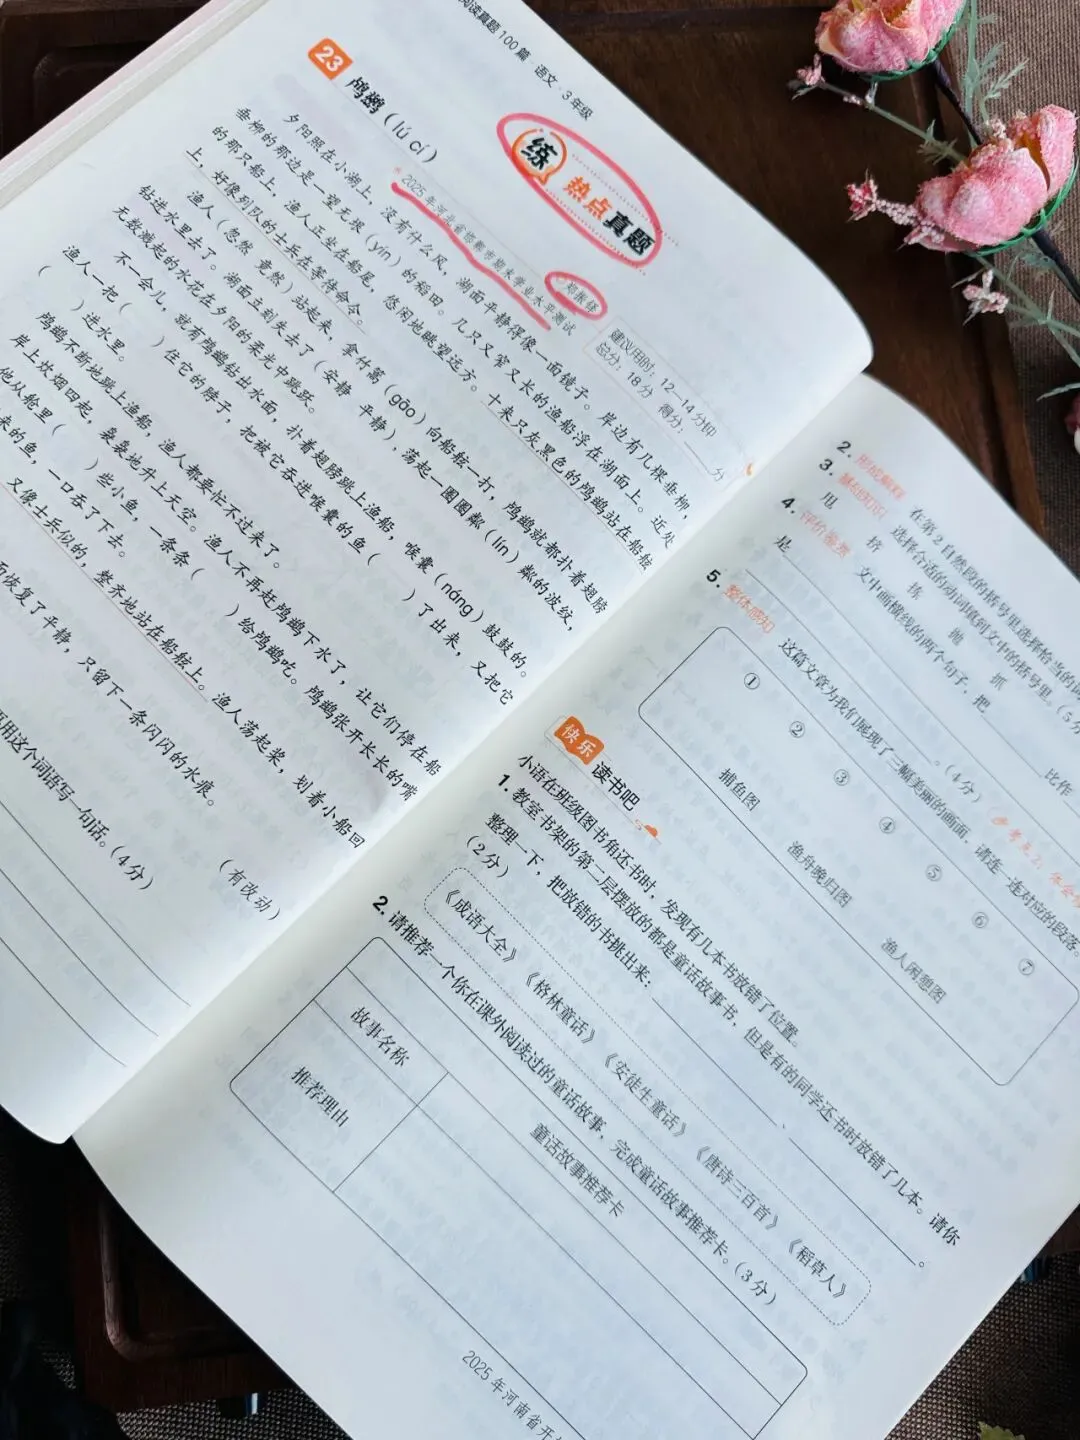 阅读真题100篇·语文·3年级
23 鸬鹚(lú cí)
练 热点真题
2025年河北省邯郸市期末学业水平测试
郑振铎
建议用时:12—14分钟
总分:18分 得分:____分
夕阳照在小湖上,没有什么风,湖面平静得像一面镜子。岸边有几棵垂柳,
垂柳的那边是一望无垠(yín)的稻田。几只又窄又长的渔船浮在湖面上。近处
的那只船上,渔人正坐在船尾,悠闲地眺望远方。十来只灰黑色的鸬鹚站在船舷
上,好像列队的士兵在等待命令。
渔人(忽然 竟然)站起来,拿竹篙(gāo)向船舷一打,鸬鹚就都扑着翅膀
钻进水里去了。湖面立刻失去了(安静 平静),荡起一圈圈粼(lín)粼的波纹,
无数溅起的水花在夕阳的柔光中跳跃。
不一会儿,就有鸬鹚钻出水面,扑着翅膀跳上渔船,喉囊(náng)鼓鼓的。
渔人一把( )住它的脖子,把被它吞进喉囊的鱼( )了出来,又把它
( )进水里。
鸬鹚不断地跳上渔船,渔人都要忙不过来了。
岸上炊烟四起,袅袅地升上天空。渔人不再赶鸬鹚下水了,让它们停在船
他从舱里( )些小鱼,一条条( )给鸬鹚吃。鸬鹚张开长长的嘴
来的鱼,一口吞了下去。
又像士兵似的,整齐地站在船舷上。渔人荡起桨,划着小船回
面恢复了平静,只留下一条闪闪的水痕。
(有改动)
用这个词语写一句话。(4分)
2. 形成解释 在第2自然段的括号里选择恰当的词
3. 基础知识 选择合适的动词填到文中的括号里。(5分
甩 挤 拣 抛 抓
4. 评价鉴赏 文中画横线的两个句子,把______比作
是______。(4分)
5. 整体感知 这篇文章为我们展现了三幅美丽的画面,请连一连对应的段落。
① ② ③ ④ ⑤ ⑥ ⑦
捕鱼图 渔舟晚归图 渔人闲憩图
快乐读书吧
小语在班级图书角还书时,发现有几本书放错了位置。
1. 教室书架的第二层摆放的都是童话故事书,但是有的同学还书时放错了几本。请你
整理一下,把放错的书挑出来:______。
(2分)
《成语大全》 《格林童话》 《安徒生童话》 《唐诗三百首》 《稻草人》
2. 请推荐一个你在课外阅读过的童话故事,完成童话故事推荐卡。(3分)
童话故事推荐卡
故事名称
推荐理由
2025年河南省开